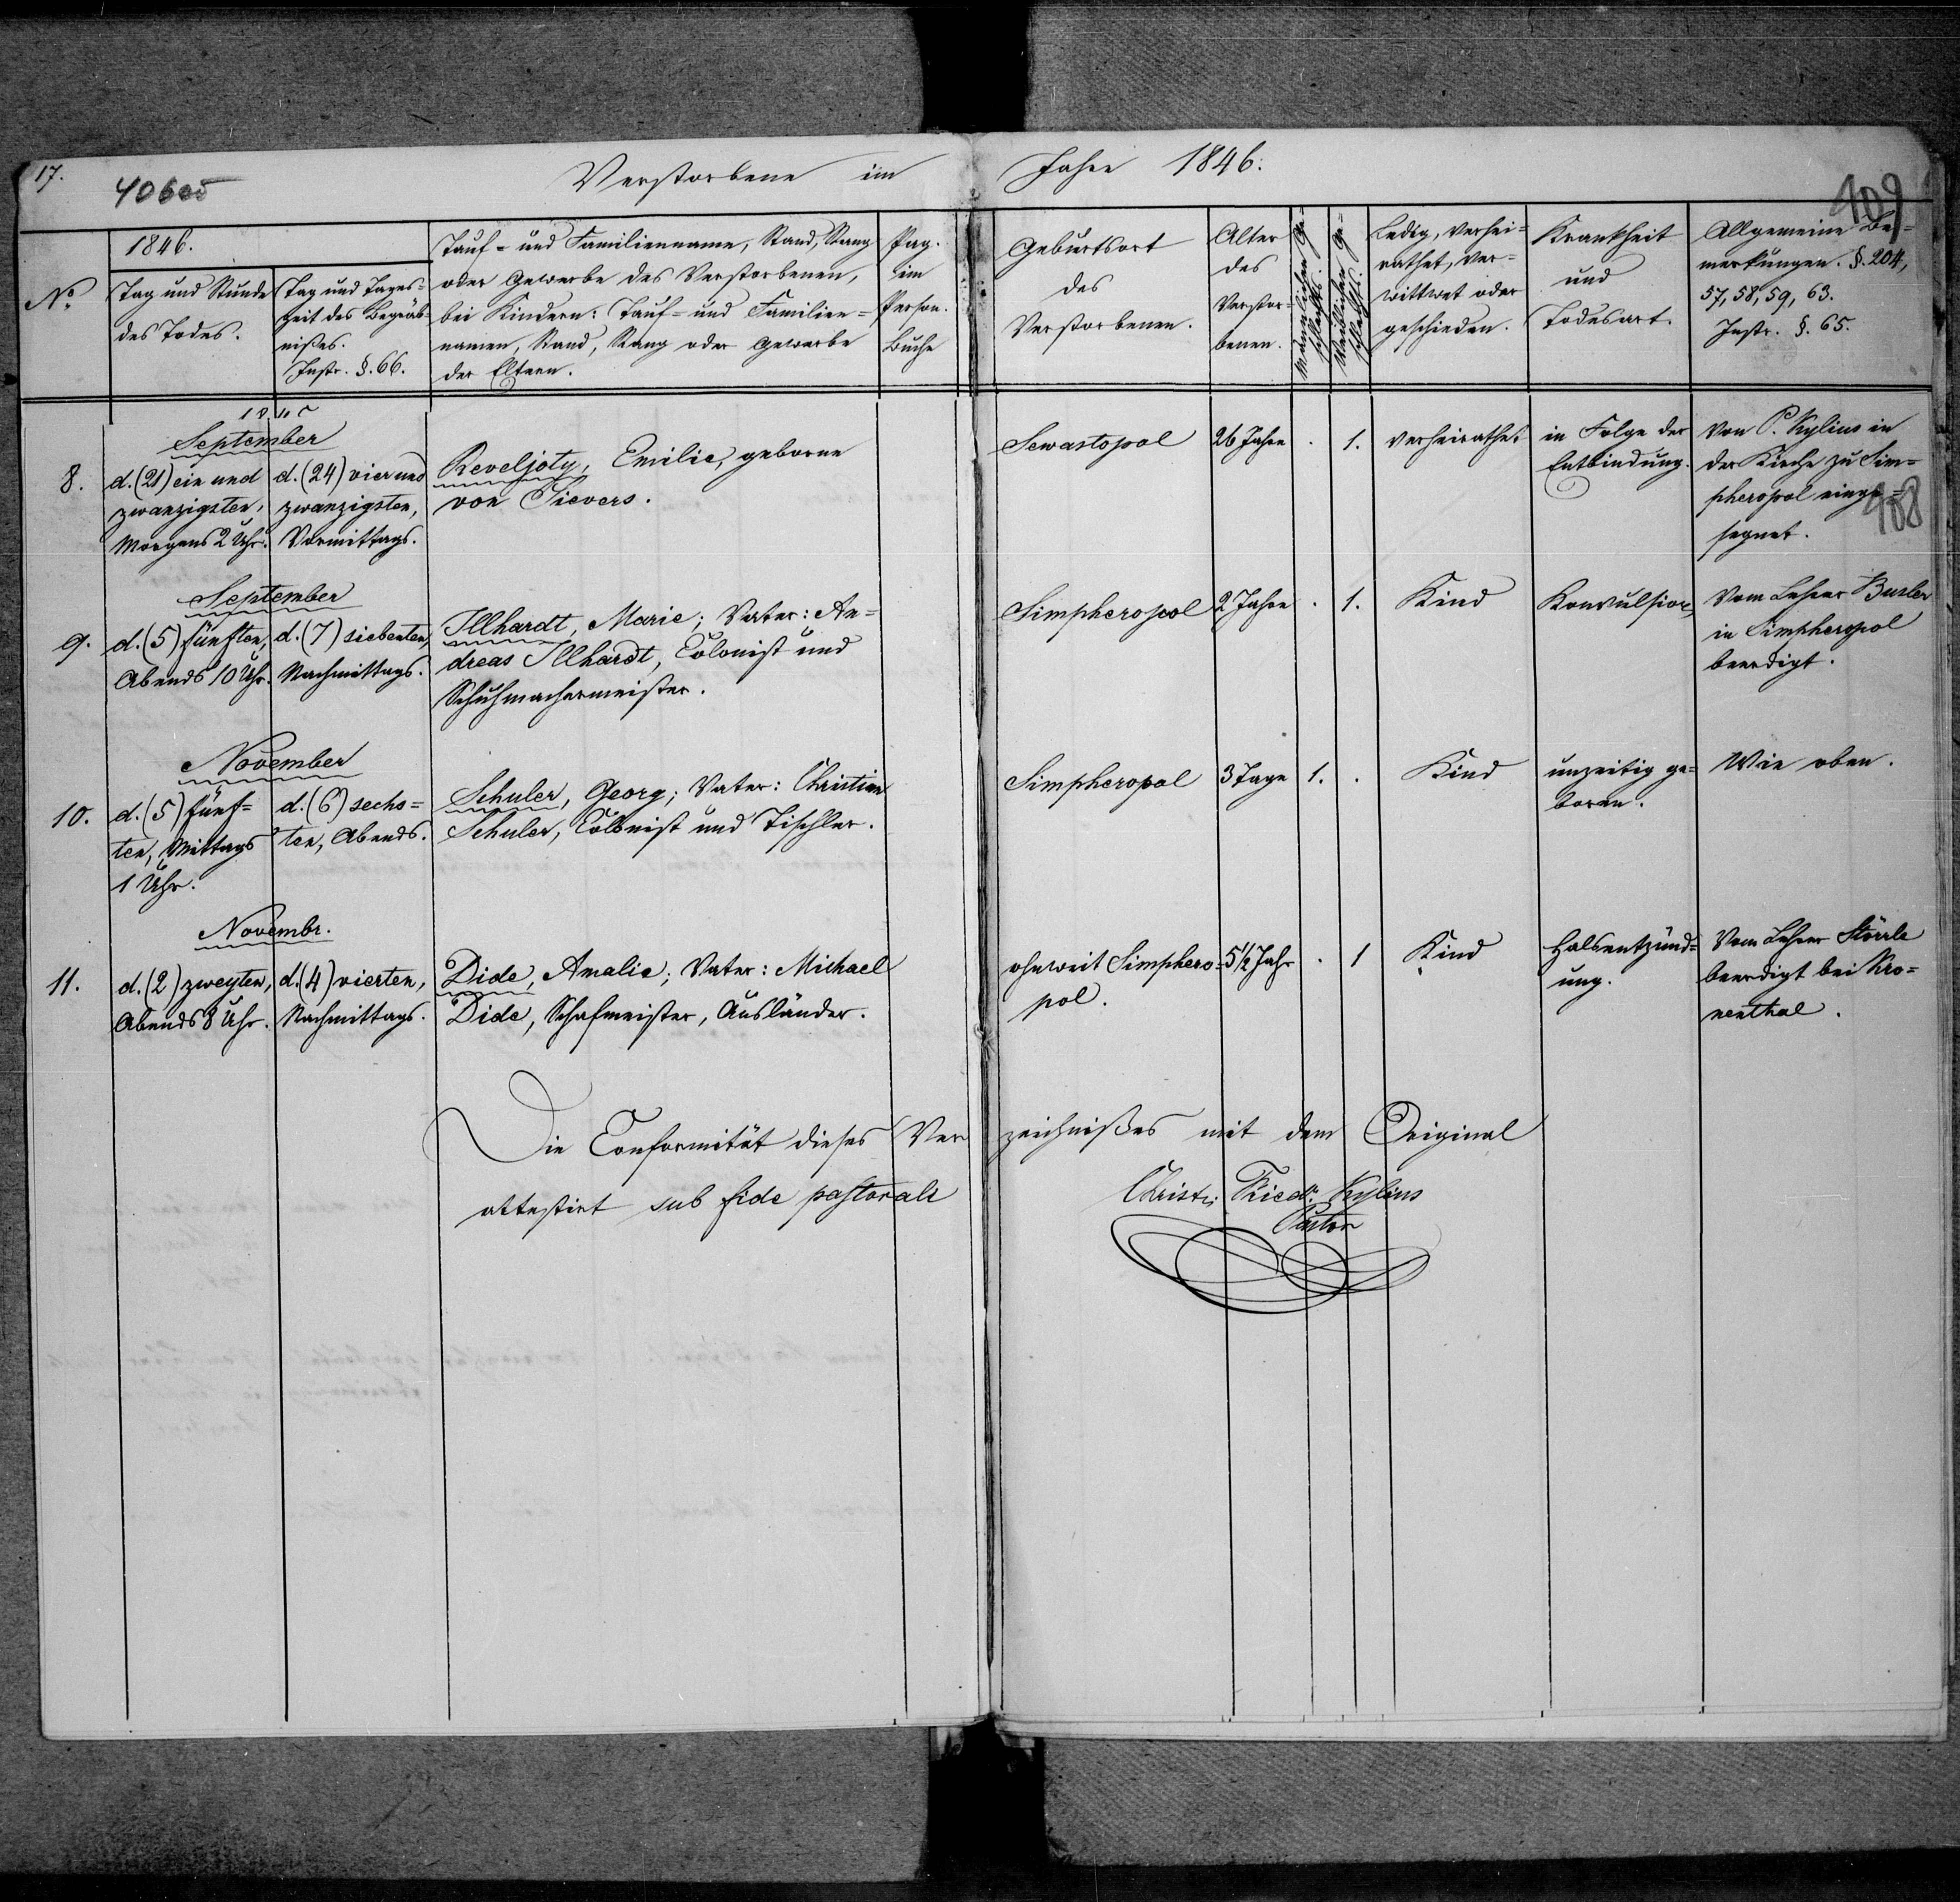 17.
406об
Verstorbene im Jahre 1846.
409
No
1846.
Tag und Stunde
des Todes.
Tag und Tages-
zeit des Begräb-
nißes.
Instr. §. 66.
Tauf- und Familienname, Stand, Rang
oder Gewerbe des Verstorbenen,
bei Kindern: Tauf- und Familien-
namen, Stand, Rang oder Gewerbe
der Eltern.
Pag.
im
Person.
Buche
Geburtsort
des
Verstorbenen.
Alter
des
Verstor-
benen.
Männlichen Ge-
schlechts.
Weiblichen Ge-
schlechts.
Ledig, verhei-
rathet, ver-
wittwet oder
geschieden.
Krankheit
und
Todesart.
Allgemeine Be-
merkungen. §. 204,
57, 58, 59, 63.
Instr. §. 65.
September
8.
d. (21) ein und
zwanzigsten,
Morgens 2 Uhr.
d. (24) vier und
zwanzigsten,
Vormittags.
Reveljoty, Emilie, geborne
von Sievers.
Sewastopol
26 Jahre
.
1.
verheirathet
in Folge der
Entbindung.
Von P. Kylius in
der Kirche zu Sim-
pheropol einge-
segnet.
408
September
9.
d. (5) fünften,
Abends 10 Uhr.
d. (7) siebenten,
Nachmittags.
Illhardt, Marie; Vater: An-
dreas Illhardt, Colonist und
Schuhmachermeister.
Simpheropol
2 Jahre
.
1.
Kind
Konvulsion,
Vom Lehrer Busler
in Simpheropol
beerdigt.
November
10.
d. (5) fünf-
ten, Mittags
1 Uhr.
d. (6) sechs-
ten, Abends.
Schuler, Georg; Vater: Christian
Schuler, Colonist und Tischler.
Simpheropol
3 Tage
1.
.
Kind
unzeitig ge-
boren.
Wie oben.
Novembr.
11.
d. (2) zweyten,
Abends 8 Uhr.
d. (4) vierten,
Nachmittags.
Dide, Amalie; Vater: Michael
Dide, Schafmeister, Ausländer.
ohnweit Simphero-
pol.
5 1/2 Jahr
.
1
Kind
Halsentzünd-
ung.
Vom Lehrer Störrle
beerdigt bei Kro-
nenthal.
Die Conformität dieses Verzeichnißes mit dem Original
attestirt sub fide pastorali
Christ. Friedr. Kylius
Pastor